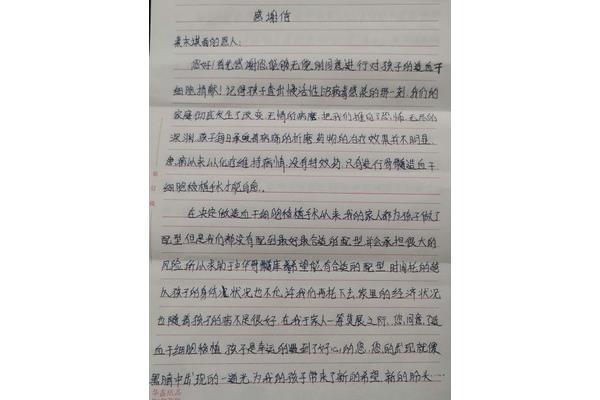 感谢信
素未谋面的恩人:
您好!首先感谢您能够无偿的同意进行对孩子的造血干
细胞捐献!记得孩子查出慢活性EB病毒感染的那一刻,我们的
家庭彻底发生了改变,无情的病魔,把我们推向了恐怖,无尽的
深渊,孩子每日承受着病痛的折磨,药物的治疗效果并不明显,
患病以来以化疗维持病情,没有特效药,只有进行骨髓造血干
细胞移植手术才能自愈。
在决定做造血干细胞移植手术以来,我的家人都为孩子做了
配型,但是我们都没有配到最好最合适的配型,并会承担很大的
风险,所以求助于中华骨髓库,希望能有合适的配型,时间托的越
久,孩子的身体状况也不允许我们再托下去,家里的经济状况
也随着孩子的病不是很好,在我于家人一筹莫展之际,您同意了造
血干细胞移植,孩子是幸运的,遇到了好心的您,您的出现就像
黑暗中出现的一道光,为我的孩子带来了新的希望,新的盼头……